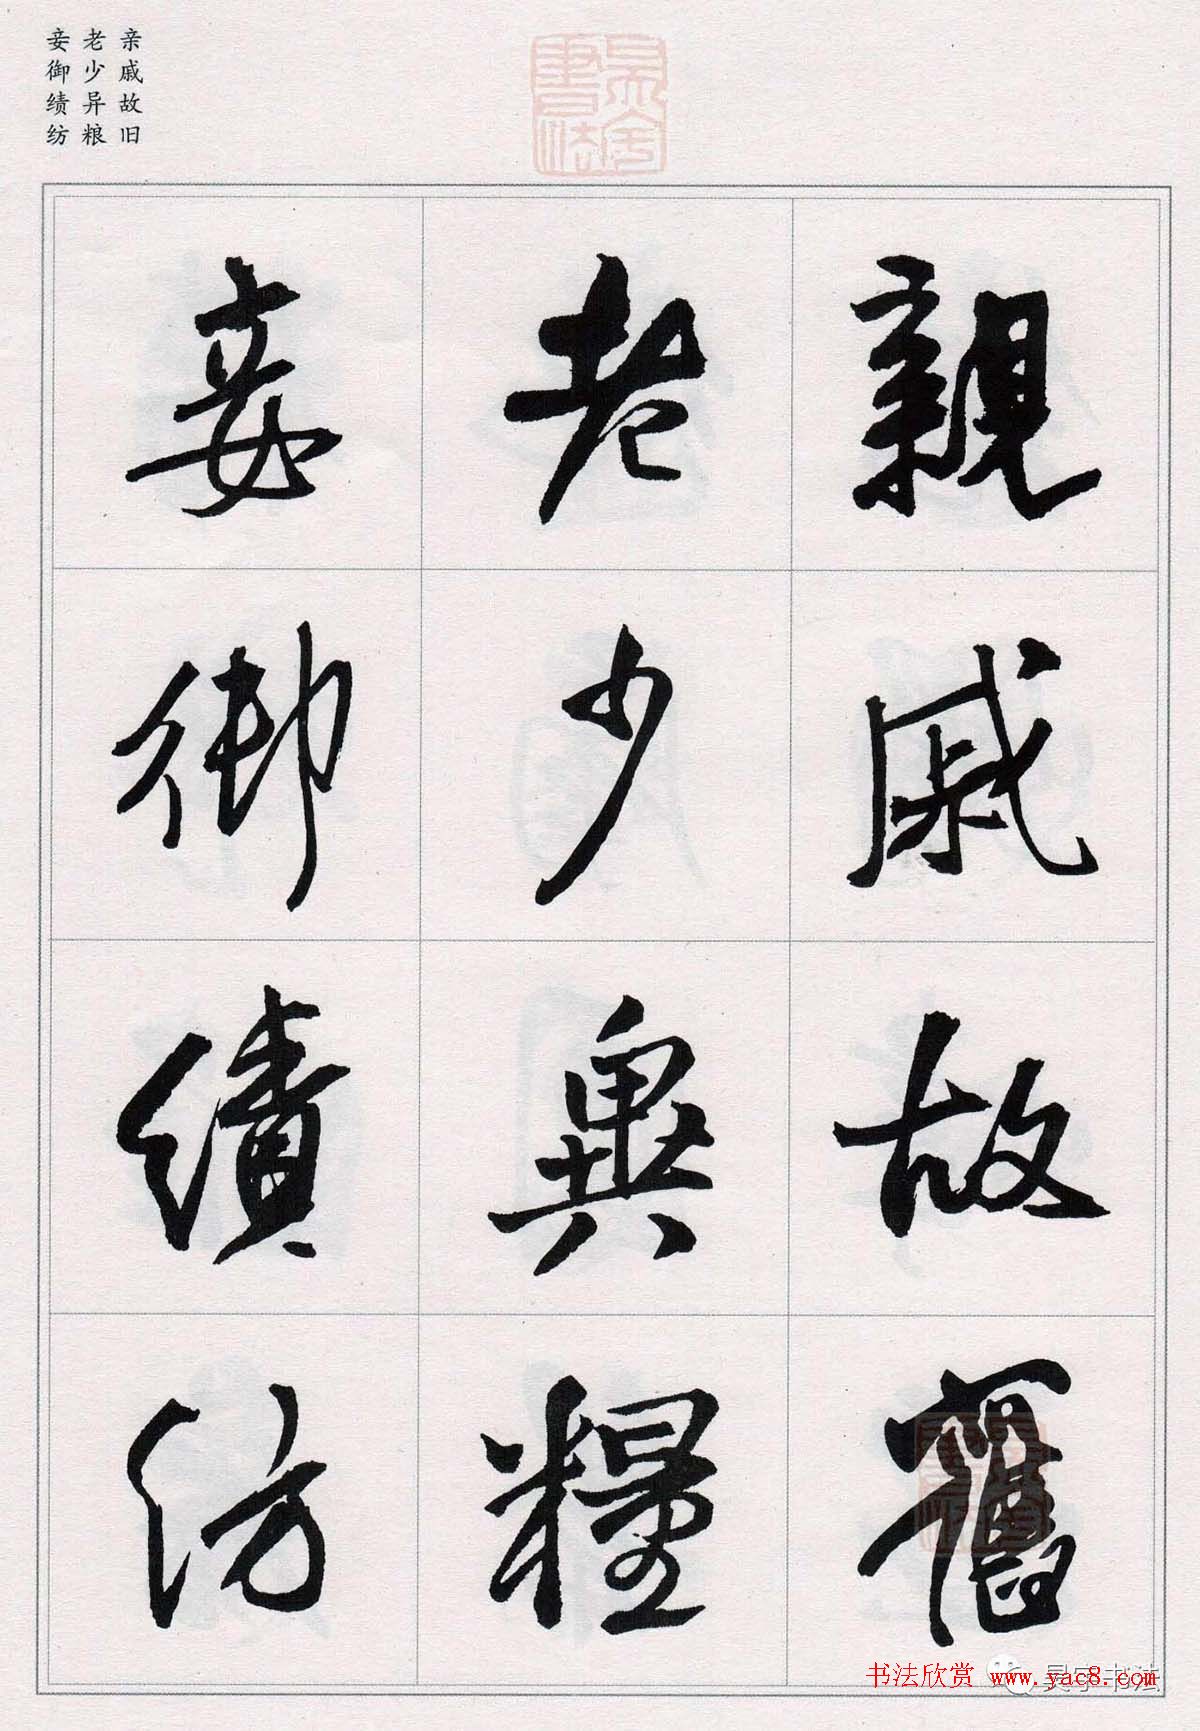 亲戚故旧
老少异粮
妾御绩纺
親戚故舊
老少異糧
妾御績紡
书法欣赏 www.yac8.com
昊宇书法